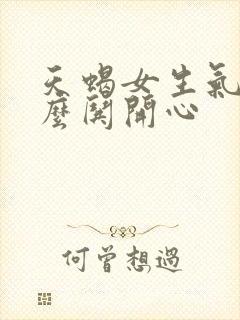 天蝎女生氣
麼関開心
何曾想過